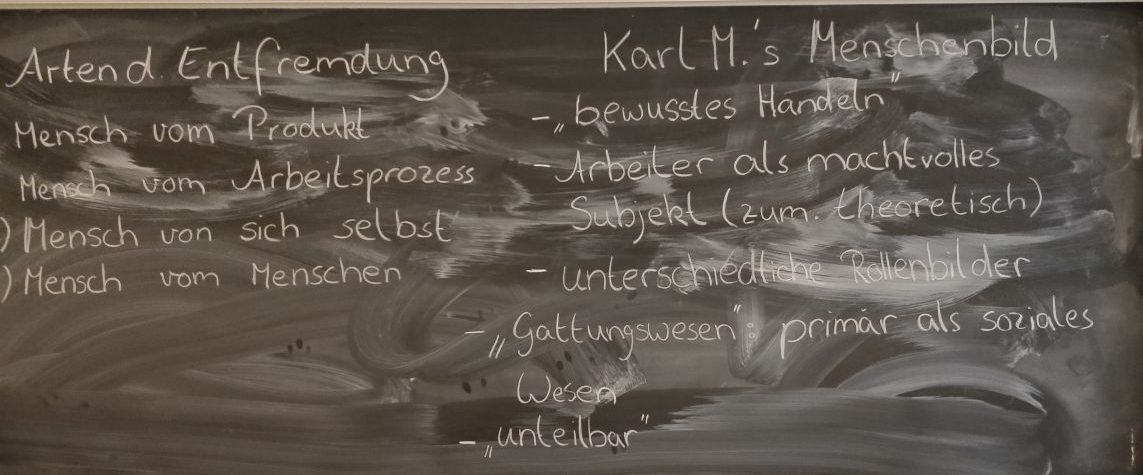 Arten d. Entfremdung
Mensch vom Produkt
Mensch vom Arbeitsprozess
) Mensch von sich selbst
) Mensch vom Menschen
Karl M.'s Menschenbild
- „bewusstes Handeln"
- Arbeiter als machtvolles
Subjekt (zum. theoretisch)
- unterschiedliche Rollenbilder
- „Gattungswesen": primär als soziales
Wesen
- „unteilbar"